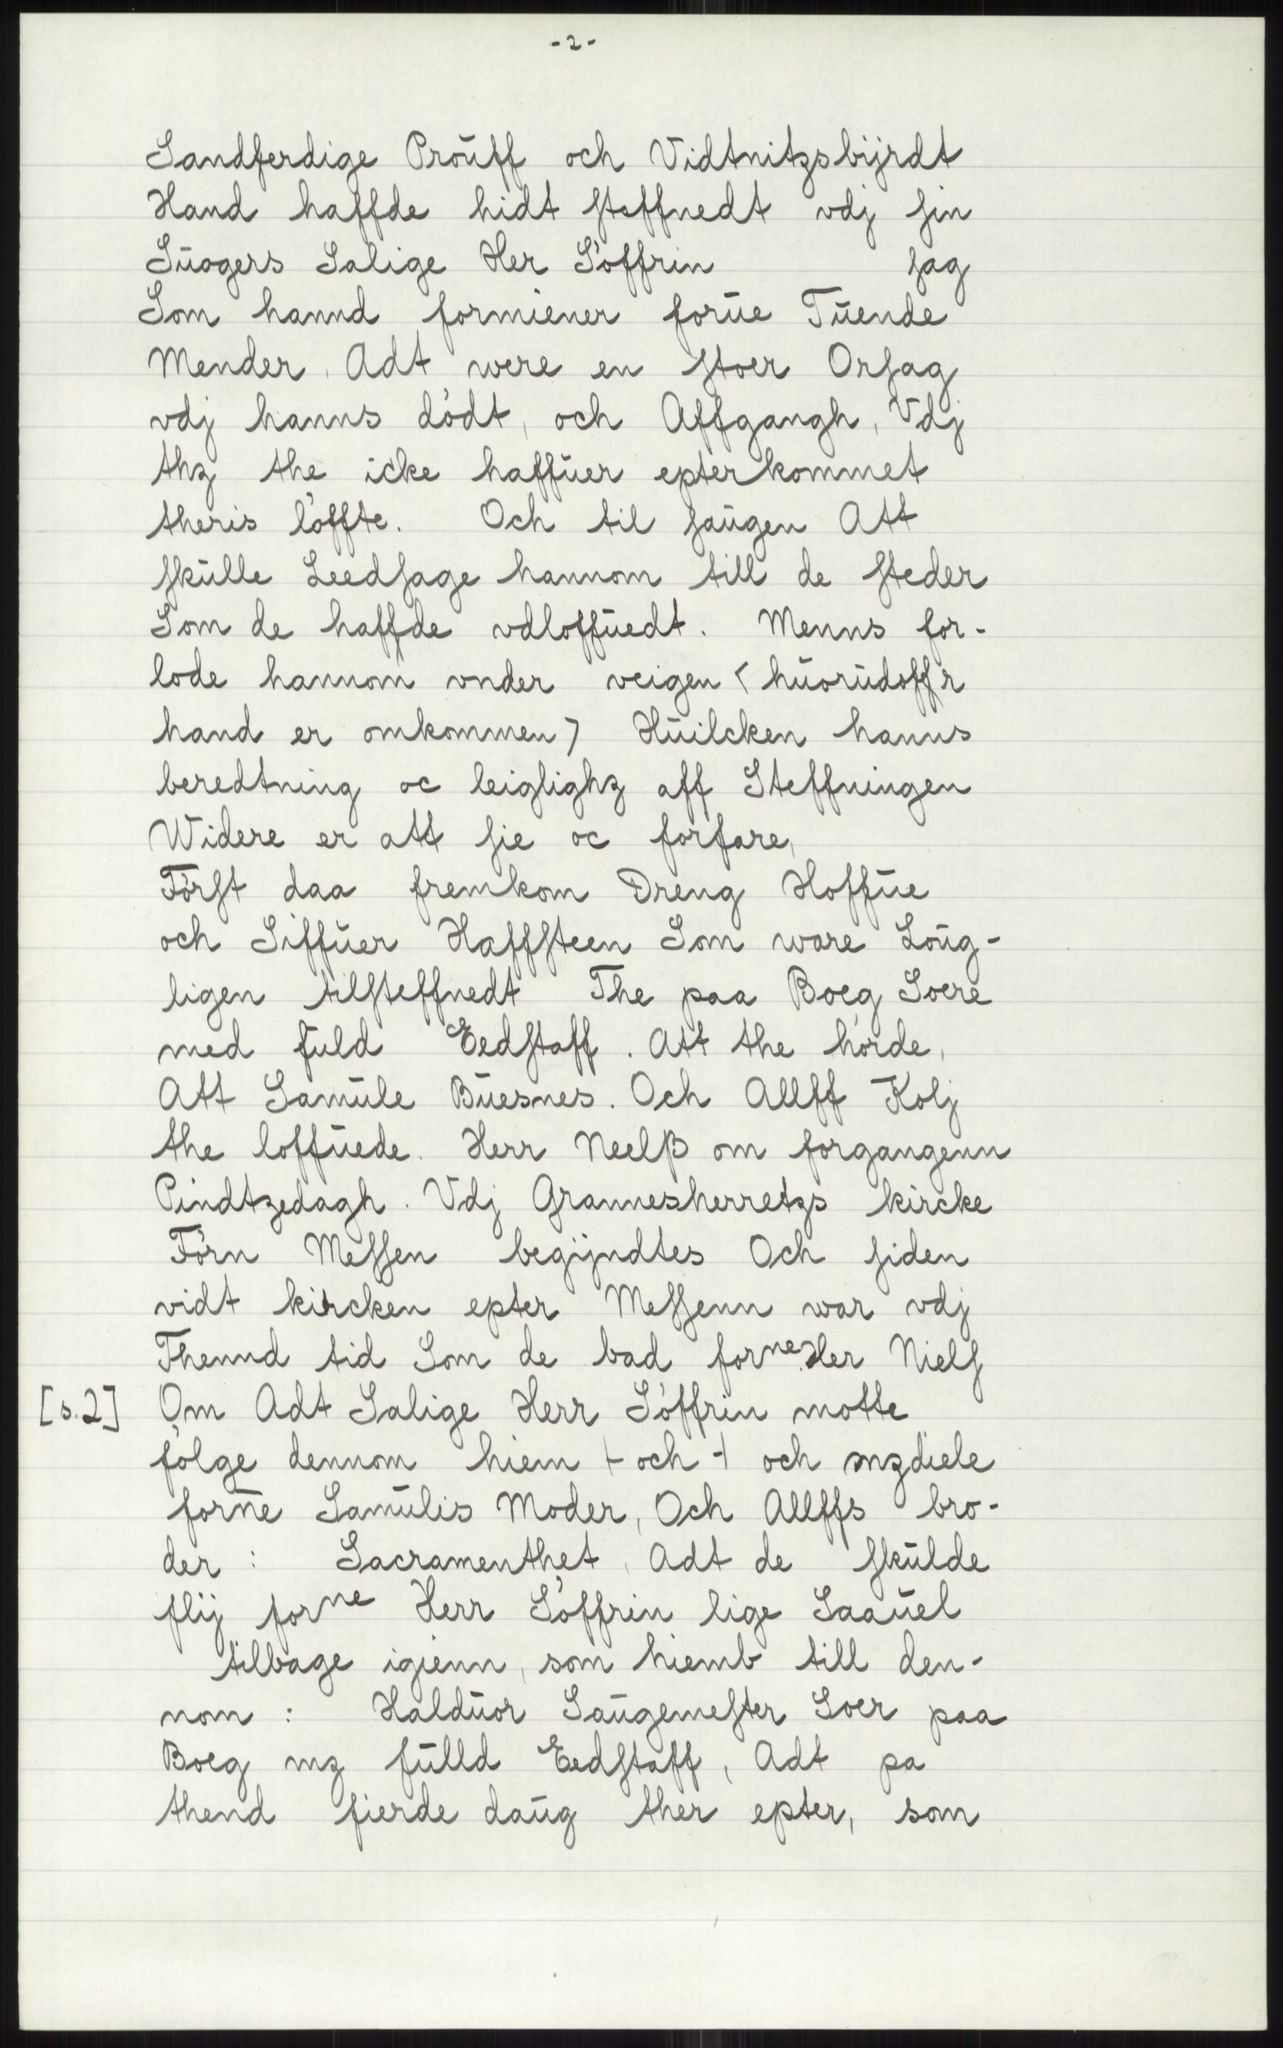 - 2 -
Sandferdige Proŭff och Vidtnitzsbijrdt
Hand haffde hidt steffnedt vdj sin
Sŭogers Salige Her Söffrin sag
Som hannd formiener forŭe Tŭende
Mender, Adt were en stoer Orsag
vdj hanns dödt, och Affgangh, Vdj
thz the icke haffŭer epterkommet
theris löffte. Och til saŭgen Att
skŭlle Leedsage hannom till de steder
Som de haffde vdloffŭedt. Menns for-
lode hannom vnder veigen < hŭorŭdoffr
hand er omkommen > Hŭilcken hanns
beredtning oc leiglighz aff Steffningen
Widere er att sie oc forfare,
Först daa fremkom Dreng Hoffŭe
och Siffŭer Haffsteen Som ware Loŭg-
ligen tilsteffnedt The paa Boeg Soere
med fuld Eedstaff. Att the hörde,
Att Samŭle Bŭesnes. Och Allff Kolj
the loffŭede. Herr Neelß om forgangenn
Pindtzedagh. Vdj Grannesherretzs kircke
Förn Messen begijndtes Och siden
vidt kircken epter Messenn war vdj
Thennd tid Som de bad forne Her Niels
[s. 2] Om Adt Salige Herr Söffrin motte
følge dennom hiem ⊢ och ⊣ och mzdiele
forne Samŭlis Moder, Och Allffs bro-
der : Sacramenthet, Adt de skŭlde
flij forne Herr Söffrin lige Saaŭel
tilbage igienn, som hiemb till den-
nom : Haldŭor Saŭgemester Soer paa
Boeg mz fŭlld Eedstaff, Adt pa
thend fierde daŭg ther epter, som